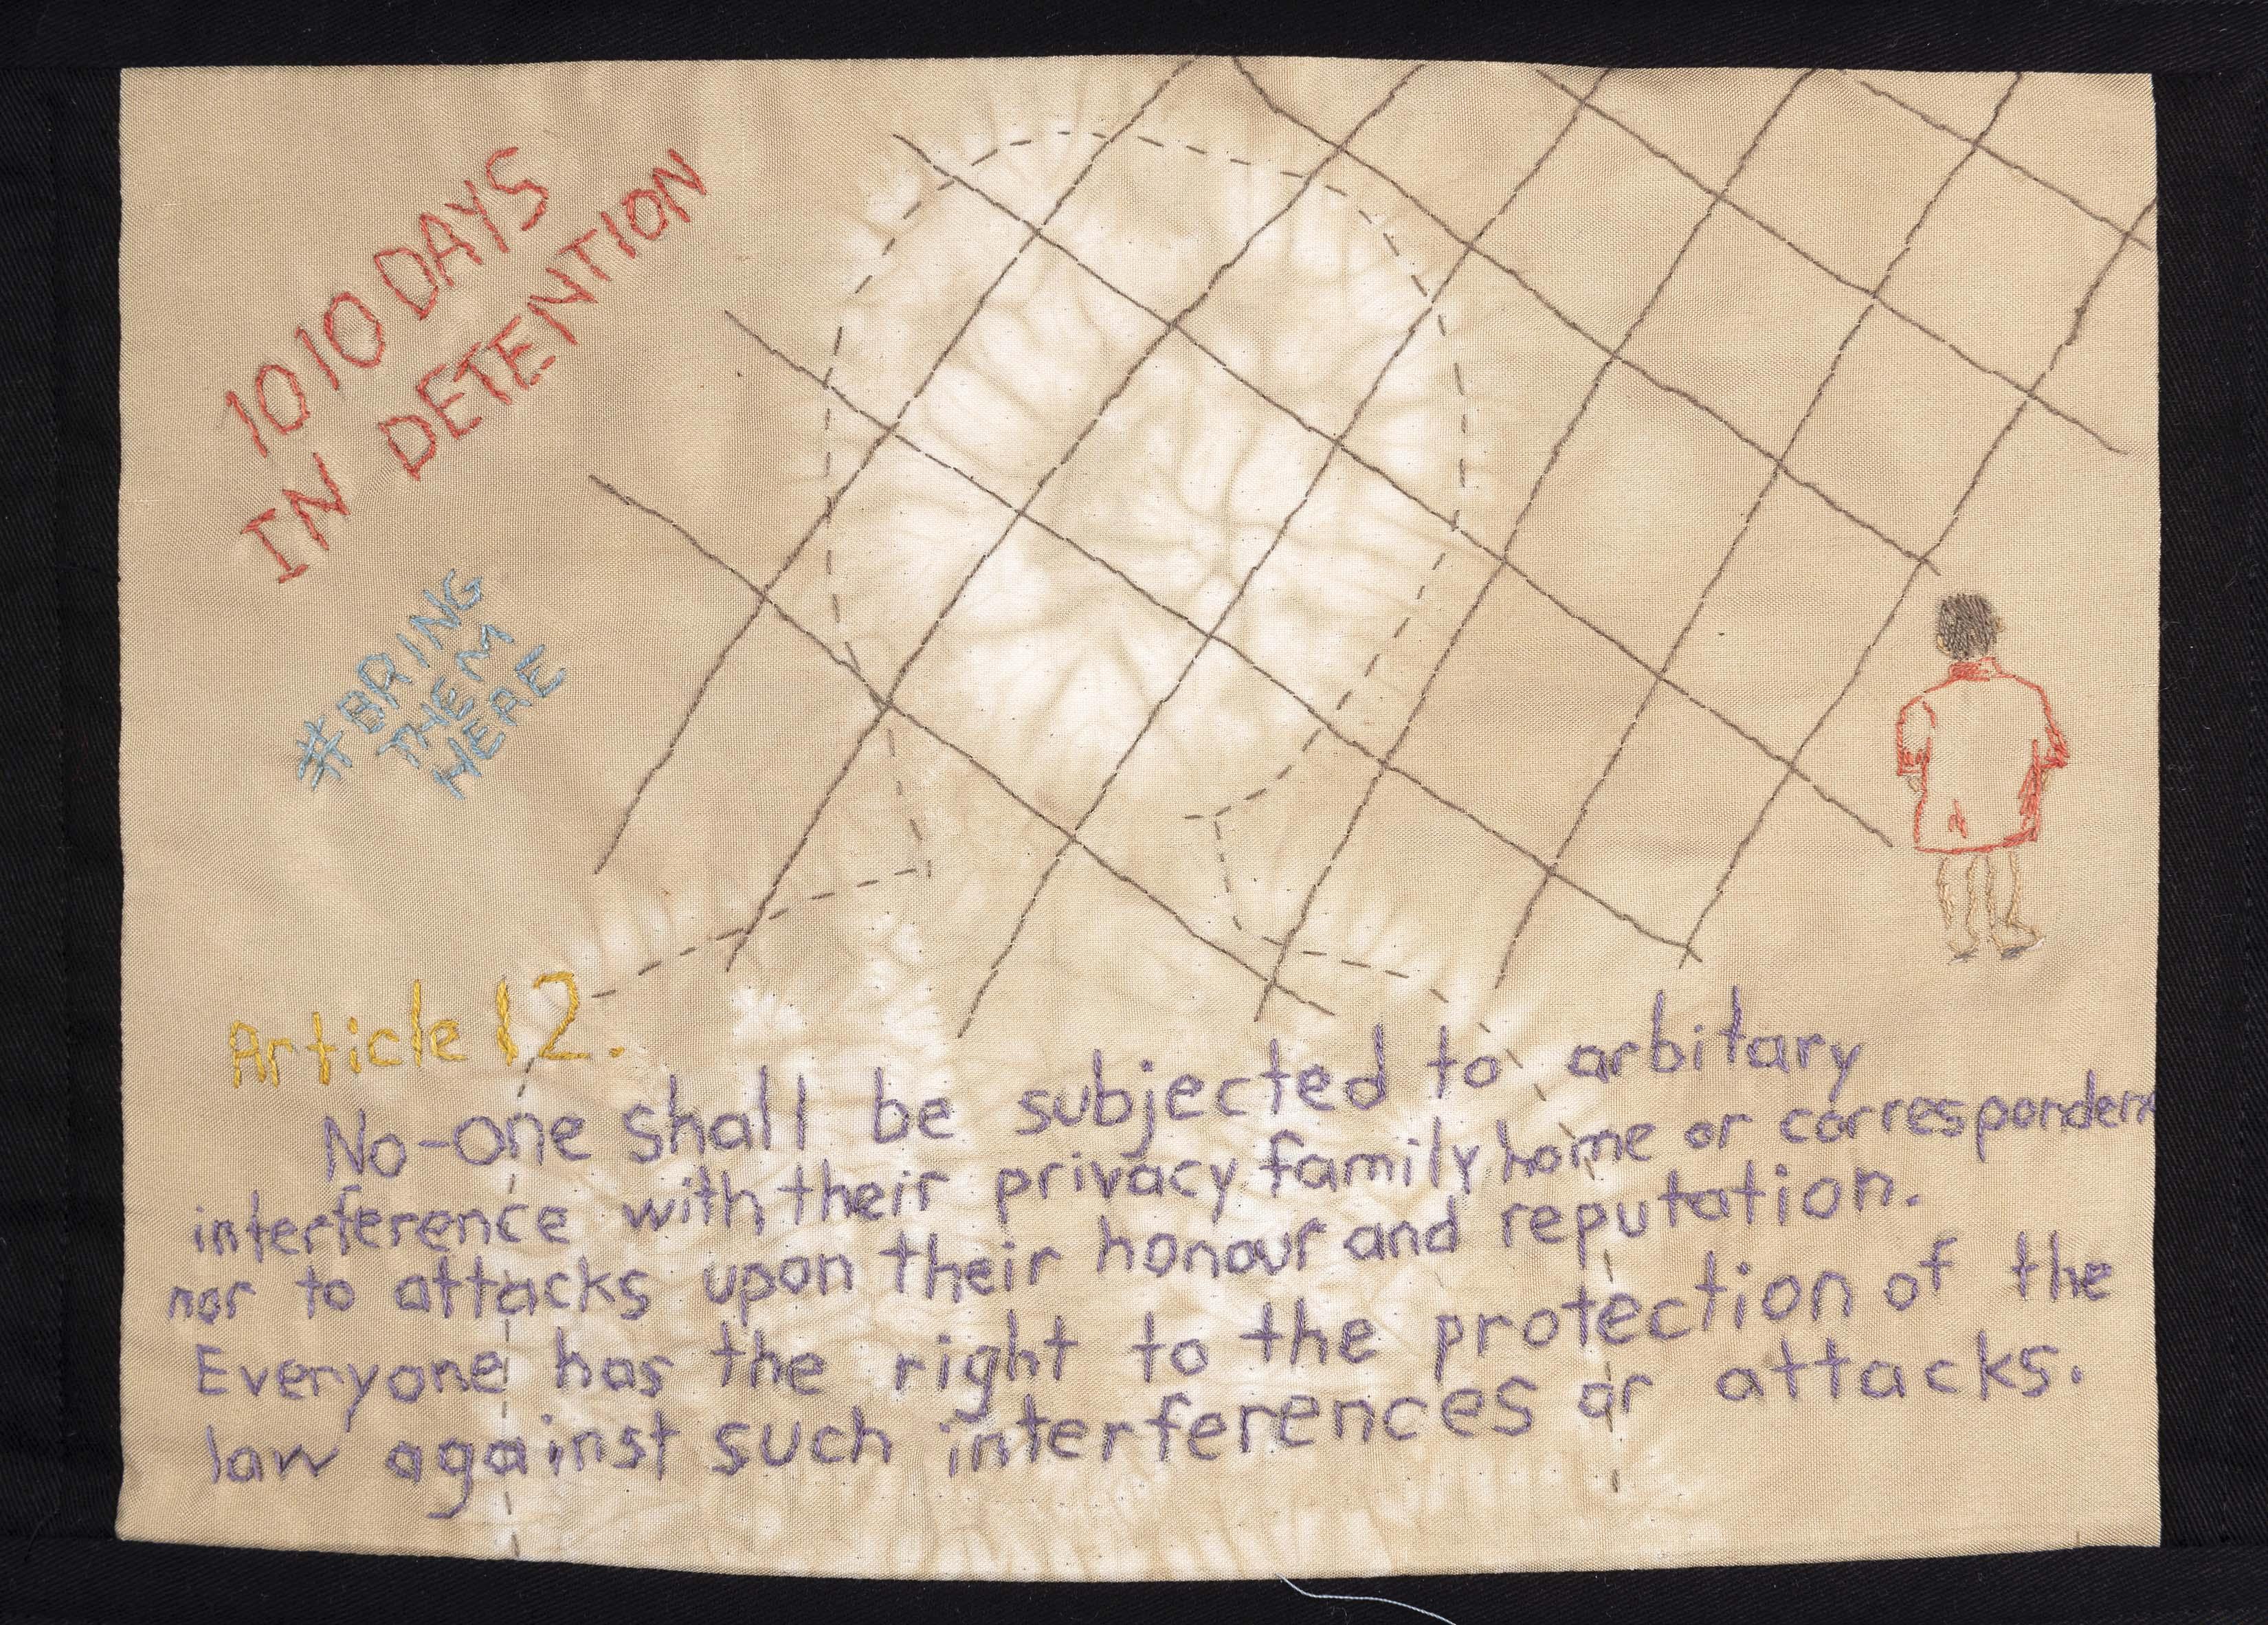 1010 DAYS
IN DETENTION
#BRING
THEM
HERE
Article 12.
No-one shall be subjected to arbitary
interference with their privacy family home or corresponden
nor to attacks upon their honour and reputation.
Everyone has the right to the protection of the
law against such interferences or attacks.